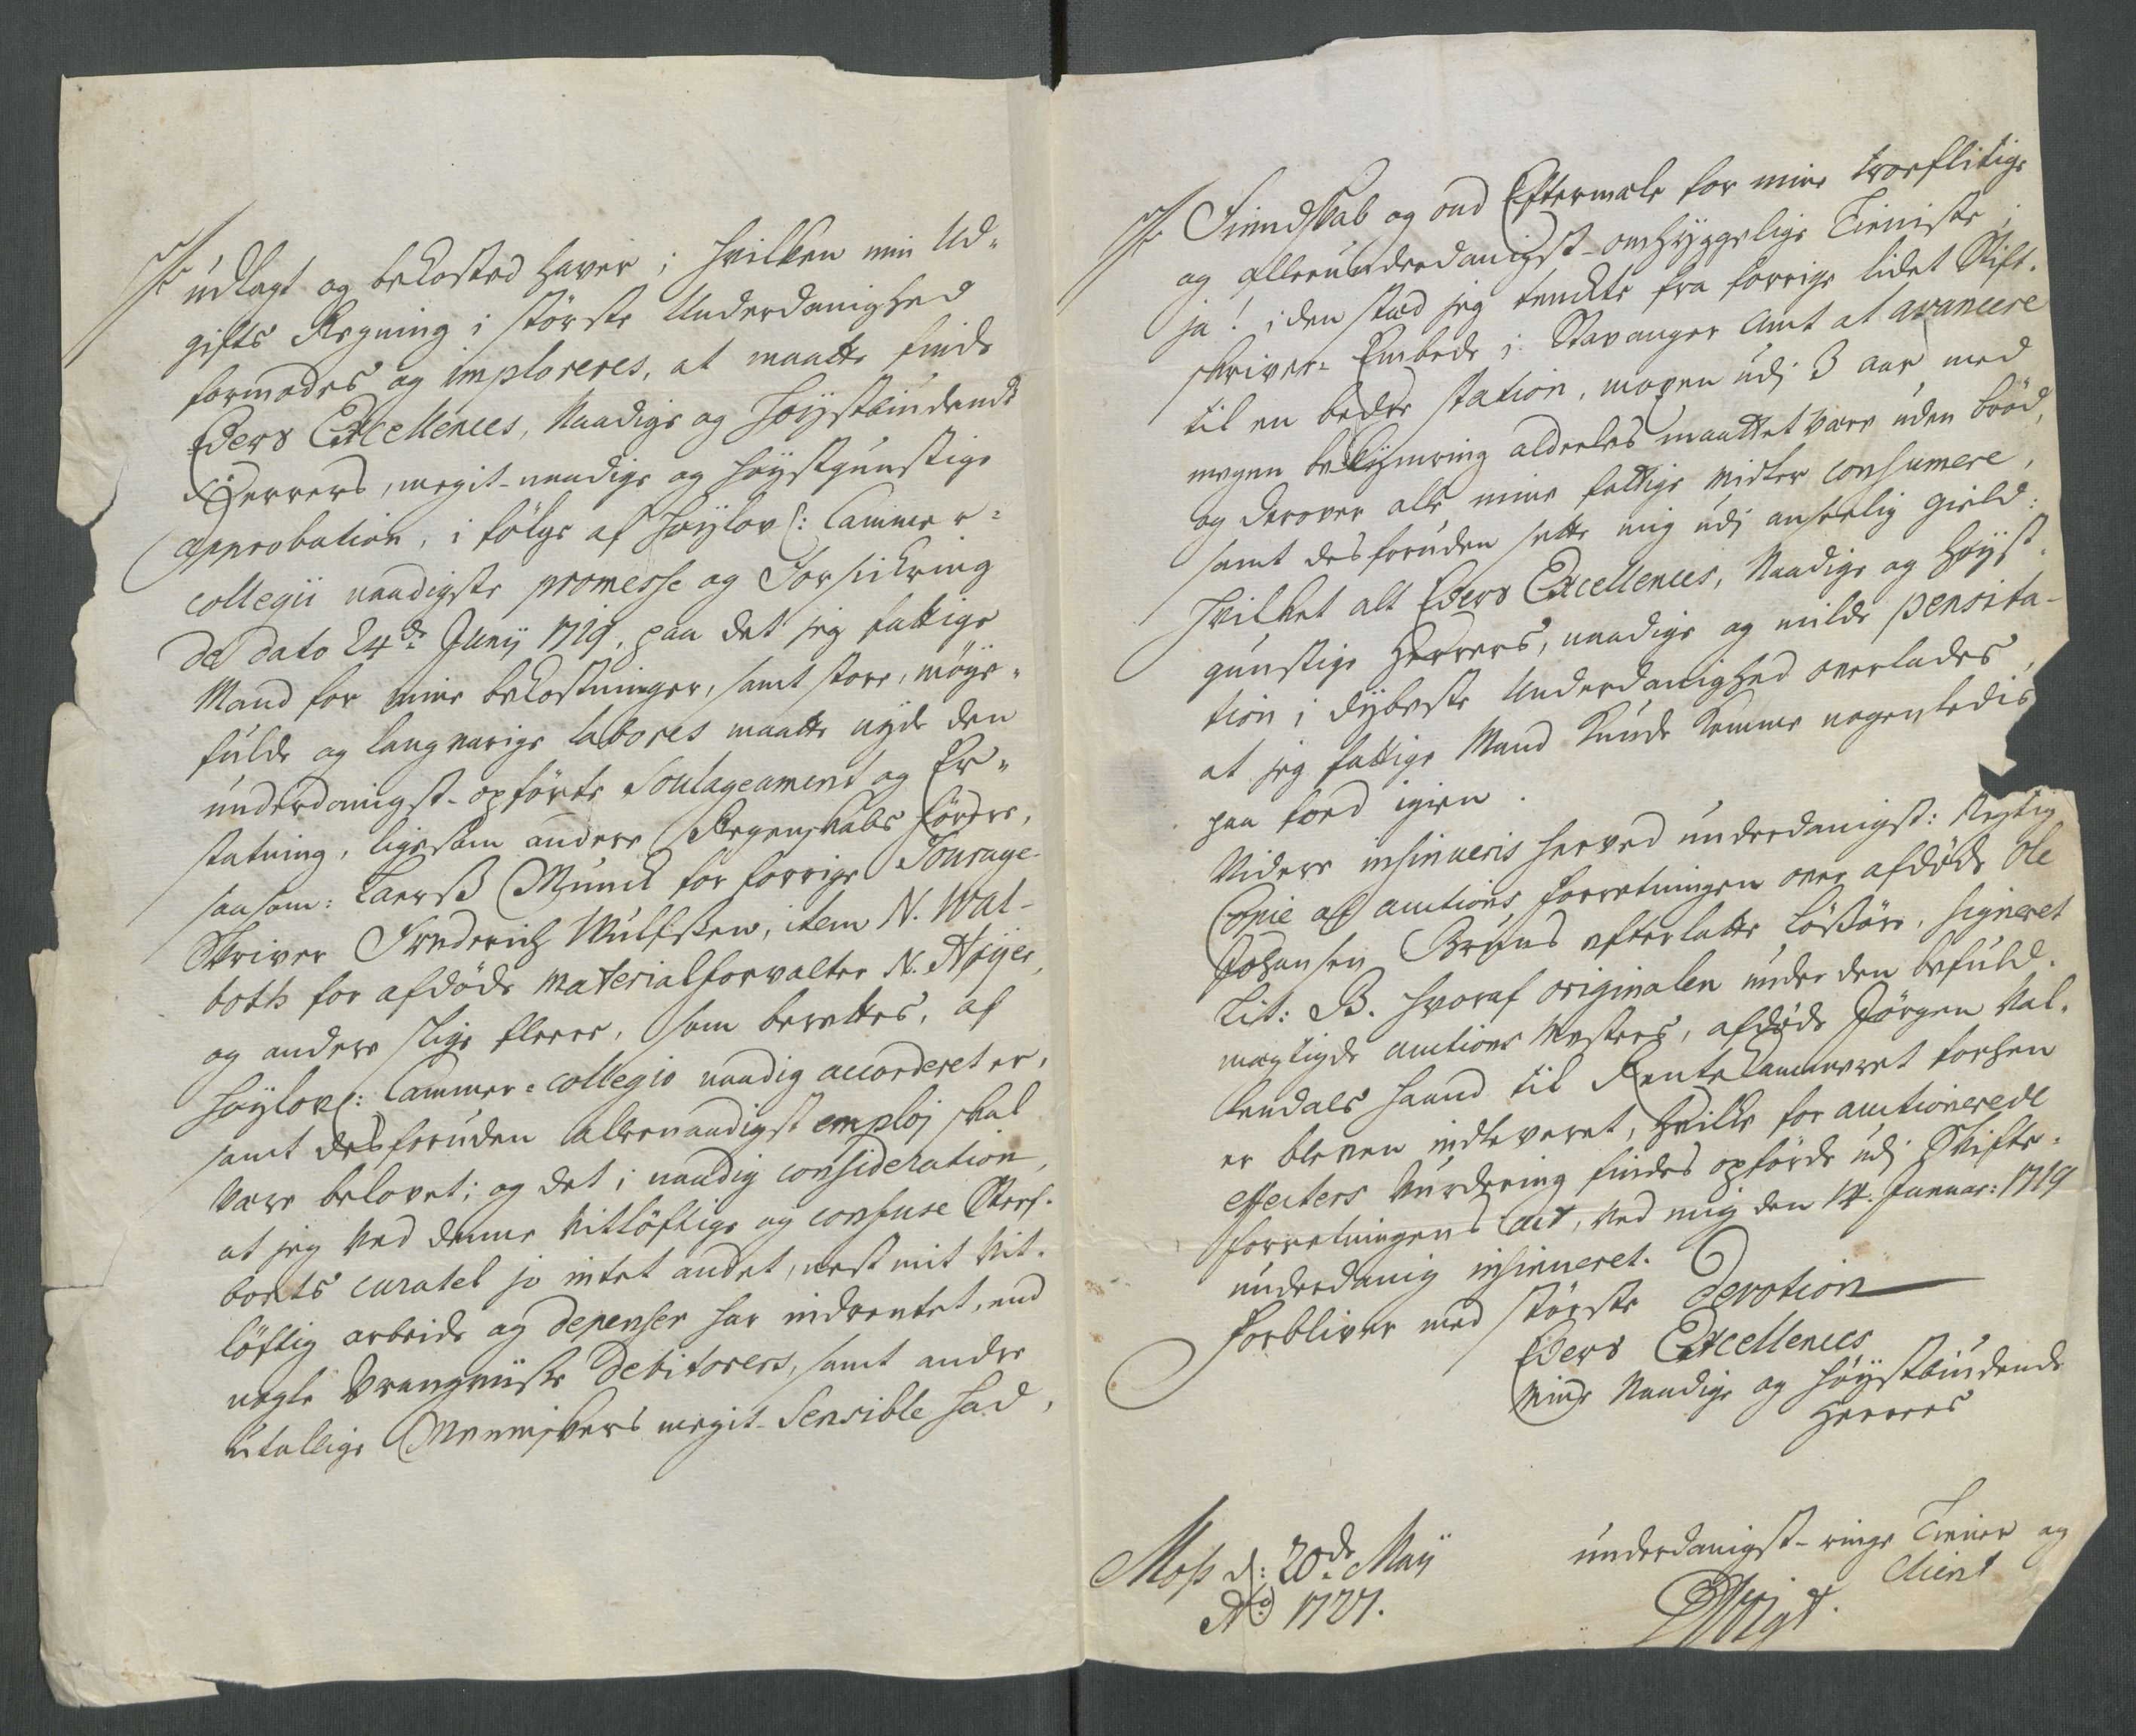 udlagt og bekosted haver; hvilken min Ud-
gifts Regning i störste Underdanighed
formodes og imploreres, at maatte finde
Eders Excellences, Naadige og Høystbiudende
Herrers, megit-naadige og høystgunstige
approbation, i følge af Høylov: Cammer-
collegii naadigste promesse og Forsickring
de dato 24de Junij 1719, paa det jeg fattige
Mand for mine bekostninger, samt store, möye-
fulde og langvarige labores maatte nyde den
underdanigst-opførte Soulageament og Er-
statning, ligesom andere Regenskabs förere,
saasom: Larss Munch for forrige Fourage-
Skriver Friderich Wulfssen, item N. Wal-
both for afdøde materialforvalter N. Høyer,
og andere slige fleere, som berettes, af
Høylov: Cammer-collegio naadig accorderet er,
samt desforuden allernaadigst emploj skal
være belovet; og det i naadig consideration,
at jeg ved denne vitløftige og confuse Sterf-
boets curatel jo intet andet, nest mit vit-
løftig arbeide og depenser har indventet, end
nogle vrangviisse Debitorers, samt andre
utallige Menniskers megit-sensible had,
Fiendskab og ond Eftermæle for mine troeflitige
og allerunderdanigst-omhyggelige Tieniste;
ja! i den stæd jeg tenckte fra forrige lidet Skift-
skriver-Embede i Stavanger Amt at avancere
til en bedre station, maxen udj 3 aar med
megen bekymring alderles maattet være uden brød,
og derover alle mine fattige midler consumere,
samt desforuden sette mig udj anseelig gield:
Hvilket alt Eders Excellences, Naadige og høyst-
gunstige Herrers, naadige og milde pensita-
tion i dybeste Underdanighed overlades,
at jeg fattige Mand kunde komme nogenledis
paa foed igien.
Videre insinueris herved underdanigst: Rigtig
Copie af auctions forretningen over afdøde Ole
Johansen Bruns efterlatte Løssøre, signeret
Lit: B. hvoraf originalen under den befuld-
mægtigde auctions Mesters, afdøde Jørgen Val-
lendals haand til Rentekammeret forhen
er bleven indleveret, hvilke for auctionerede
effecters Vurdering findes opførde udj Skifte-
forretningens act, ved mig den 14. Januar: 1719
underdanig insinueret.
Forbliver med störste Devotion
Eders Excellences
Mine Naadige og høystbiudende
Herrers
underdanigst-ringe Tiener og
Client
Moss d: 20de Maij
Ao 1727.
Vigt.